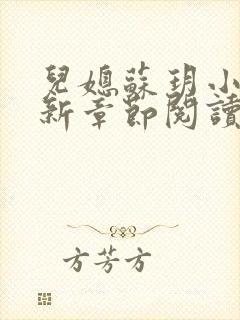 兒媳蘇玥小
新章節閱讀
方芳方